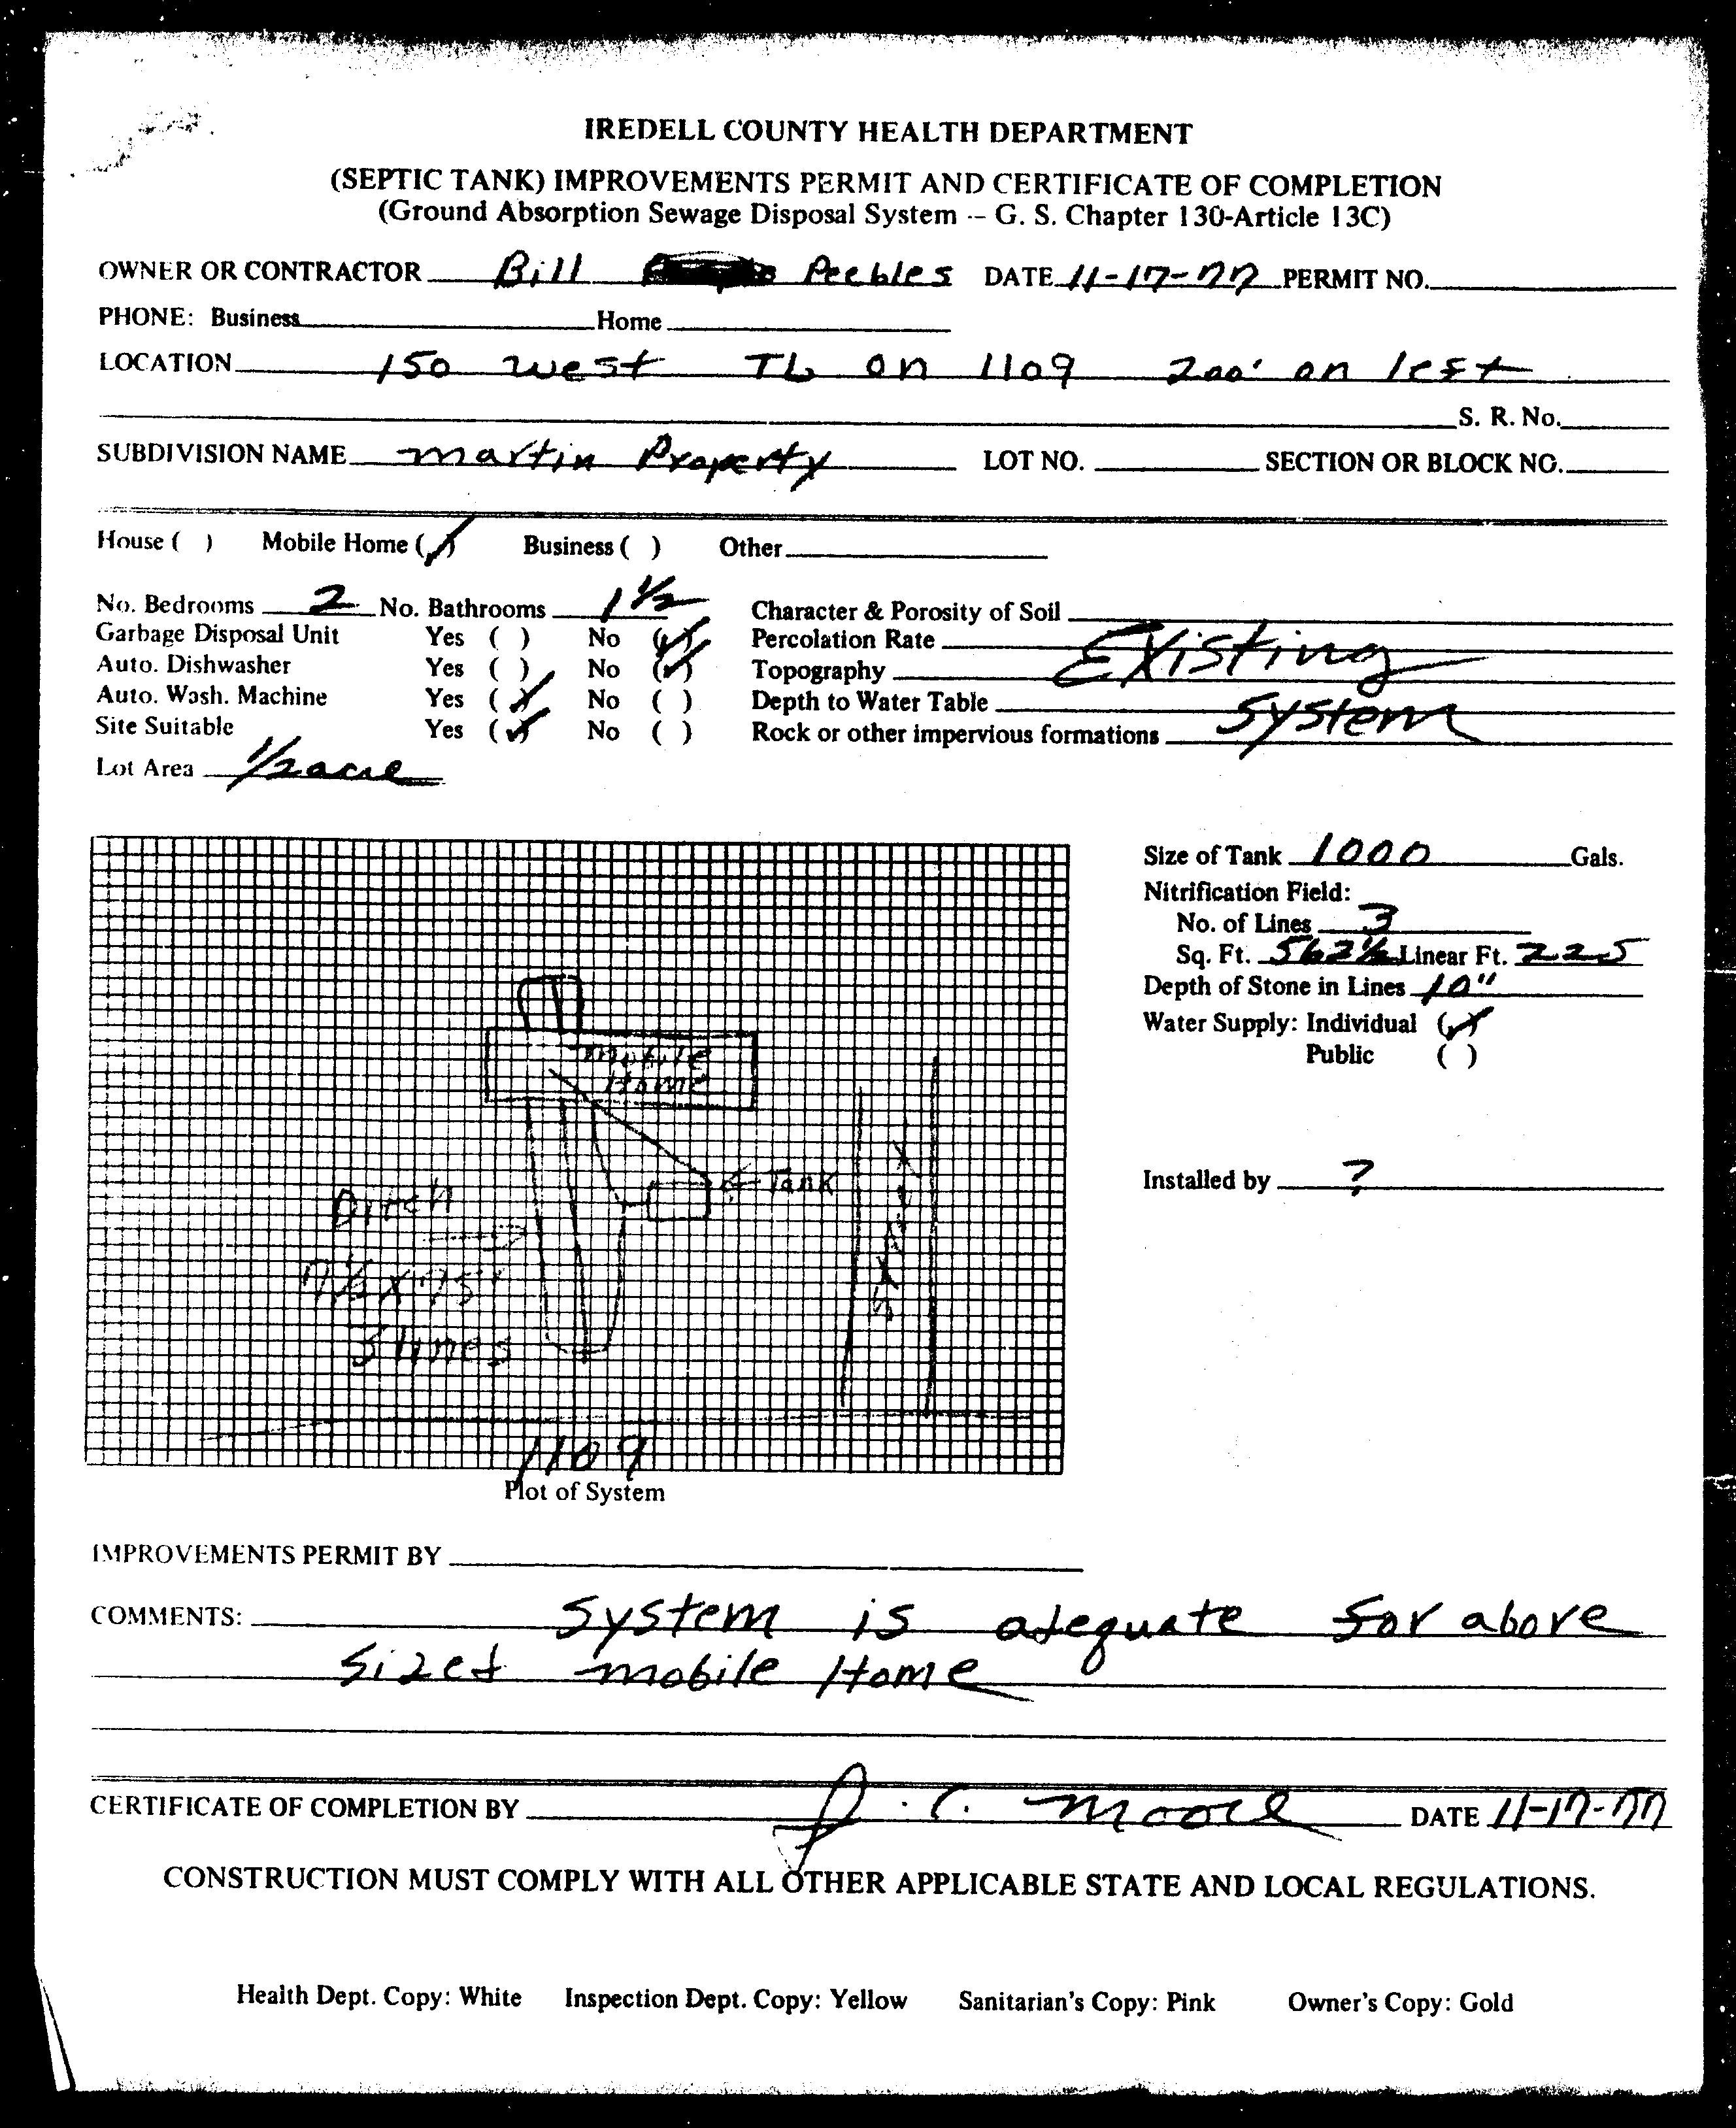 IREDELL COUNTY HEALTH DEPARTMENT
(SEPTIC TANK) IMPROVEMENTS PERMIT AND CERTIFICATE OF COMPLETION
(Ground Absorption Sewage Disposal System -- G. S. Chapter 130-Article 13C)
OWNER OR CONTRACTOR Bill Peebles DATE 11-17-77 PERMIT NO.
PHONE: Business Home
LOCATION 150 west TL on 1109 200' on left
S. R. No.
SUBDIVISION NAME martin Property LOT NO. SECTION OR BLOCK NO.
House ( ) Mobile Home (✓) Business ( ) Other
No. Bedrooms 2 No. Bathrooms 1 1/2 Character & Porosity of Soil
Garbage Disposal Unit Yes ( ) No (✓) Percolation Rate Existing
Auto. Dishwasher Yes ( ) No (✓) Topography
Auto. Wash. Machine Yes (✓) No ( ) Depth to Water Table System
Site Suitable Yes (✓) No ( ) Rock or other impervious formations
Lot Area 1/2 acre
Size of Tank 1000 Gals.
Nitrification Field:
No. of Lines 3
Sq. Ft. 562 1/2 Linear Ft. 225
Depth of Stone in Lines 10"
Water Supply: Individual (✓)
Public ( )
mobile
Home
Tank
Installed by ?
Ditch
lines
1109
Plot of System
IMPROVEMENTS PERMIT BY
COMMENTS: System is adequate for above
sized mobile Home
CERTIFICATE OF COMPLETION BY J. C. Moore DATE 11-17-77
CONSTRUCTION MUST COMPLY WITH ALL OTHER APPLICABLE STATE AND LOCAL REGULATIONS.
Health Dept. Copy: White Inspection Dept. Copy: Yellow Sanitarian's Copy: Pink Owner's Copy: Gold